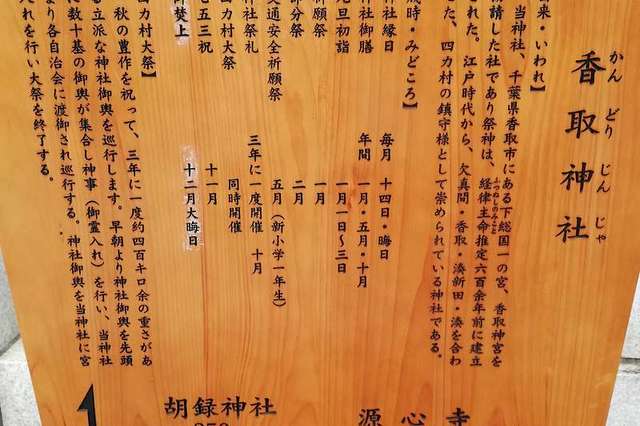 香取神社
かんどりじんじゃ
来・いわれ】
当神社、千葉県香取市にある下総国一の宮、香取神宮を
請した社であり祭神は、経律主命推定六百余年前に建立
ふつぬしのみこと
された。江戸時代から、欠真間・香取・湊新田・湊を合わ
た、四カ村の鎮守様として崇められている神社である。
歳時・みどころ】
神社縁日 毎月 十四日・晦日
神社御膳 年間 一月・五月・十月
元旦初詣 一月一日〜三日
祈願祭 一月
節分祭 二月
交通安全祈願祭 五月（新小学一年生）
神社祭礼 三年に一度開催 十月
四カ村大祭 同時開催
七五三祝 十一月
御焚上 十二月大晦日
四カ村大祭】
秋の豊作を祝って、三年に一度約四百キロ余の重さがあ
る立派な神社御輿を巡行します。早朝より神社御輿を先頭
に数十基の御輿が集合し神事（御霊入れ）を行い、当神社
より各自治会に渡御され巡行する。神社御輿を当神社に宮
入れを行い大祭を終了する。
源心寺
胡録神社